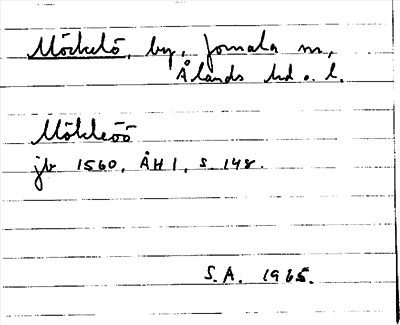 Möckelö, by, Jomala sn,
Ålands hd o. l.
Mökleöö
jb 1560, ÅH I, s. 148.
S.A. 1965.